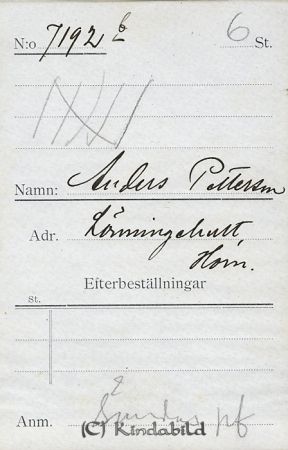 N:o 7192 b 6 St.
Namn: Anders Petterson
Adr. Lönningehult
Horn.
Efterbeställningar
St.
Anm. Sändas pf
(C) Kindabild